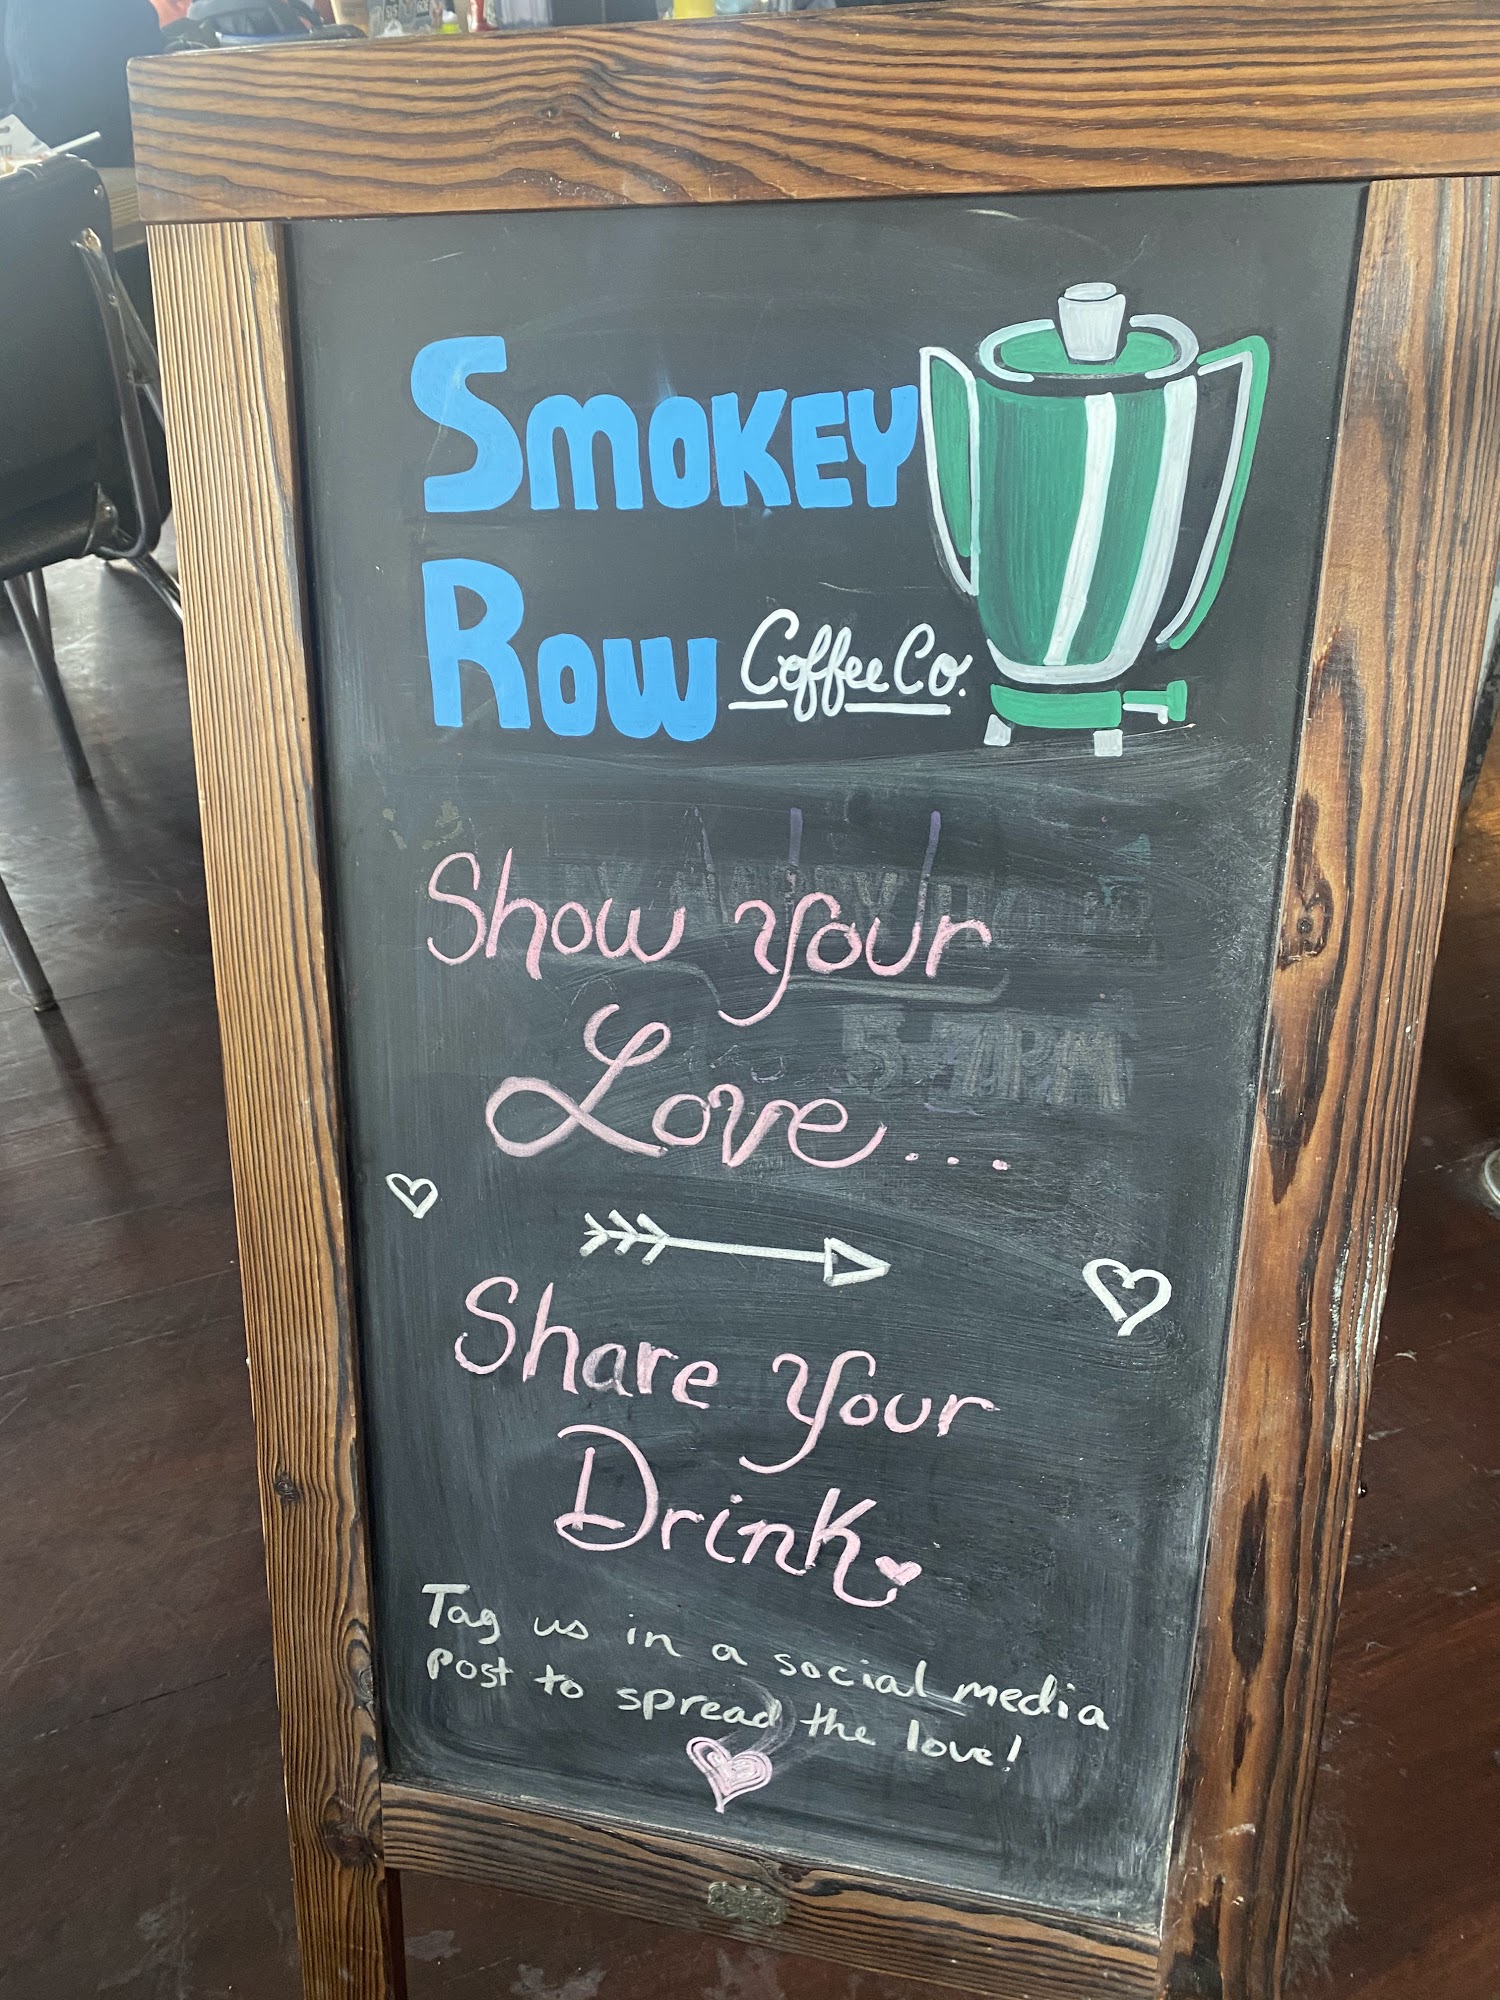 Smokey
Row Coffee Co.
Show Your
Love...
Share Your
Drink
Tag us in a social media
post to spread the love!
5-7PM